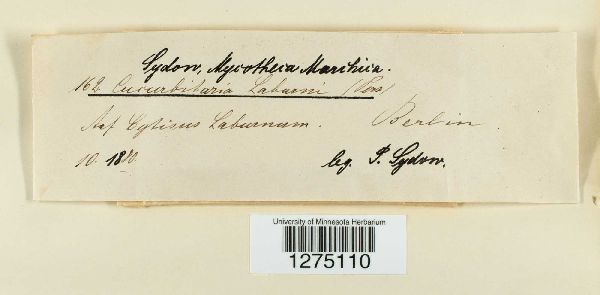 Sydow, Mycotheca Marchica.
162 Cucurbitaria Laburni
Auf Cytisus Laburnum. Berlin
10. 18 leg. P. Sydow.
University of Minnesota Herbarium
1275110